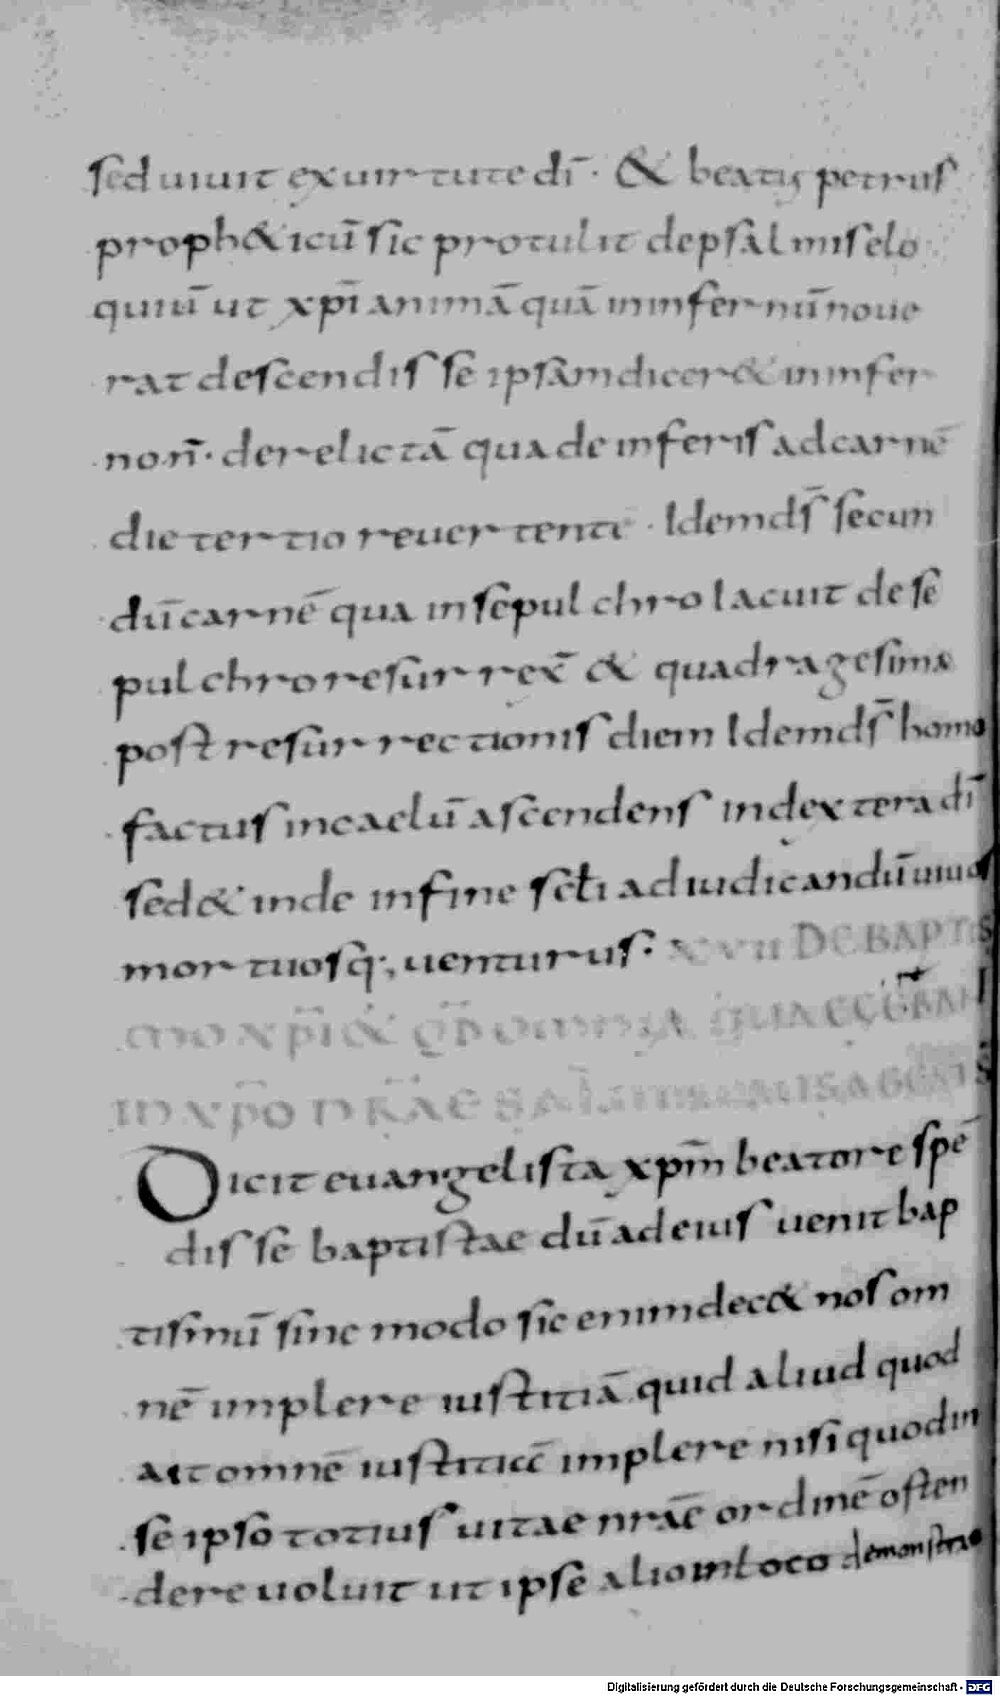 sed uiuit ex uirtute dī · & beatus petrus
proph&icū sic protulit de psalmis elo
quiū ut xp̄i animā quā in infernū noue
rat descendisse ipsam dicer& in infer
no n̄ · derelictā qua de inferis ad carnē
die tertio reuertente · Idem d̄s secun
dū carnē qua in sepulchro lacuit de se
pulchro resurrex̄ & quadragesimæ
post resurrectionis diem Idem d̄s homo
factus in caelū ascendens in dextera dī
sed & inde in fine sc̄li ad iudicandū uiuos
mortuosq; uenturus · XVII DE BAPTIS
MO XP̄I & QD OMNIA QUAE
IN XP̄O
Dicit euangelista xp̄m beatore spē
disse baptistae dū ad eius uenit bap
tismū sine modo sic enim dec& nos om
nē implere iustitiā quid aliud quod
ait omnē iustitiā implere nisi quod in
se ipso totius uitae nr̄ae ordinē osten
dere uoluit ut ipse alio in loco demonstra
Digitalisierung gefördert durch die Deutsche Forschungsgemeinschaft - DFG